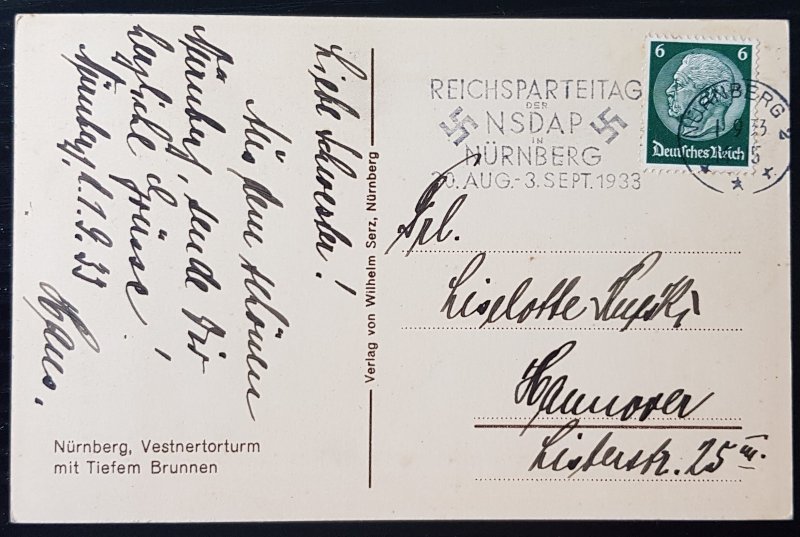 Liebe Schwester!
Aus dem schönen
Nürnberg, sende Dir
herzliche Grüsse
Nürnberg, d. 1.9.33
Hans.
Nürnberg, Vestnertorturm
mit Tiefem Brunnen
Verlag von Wilhelm Serz, Nürnberg
REICHSPARTEITAG
DER
NSDAP
IN
NÜRNBERG
30. AUG.-3. SEPT. 1933
6 6
Deutsches Reich
NÜRNBERG 2
1.9.33
Frl.
Liselotte
Hannover
Listerstr. 25 III.